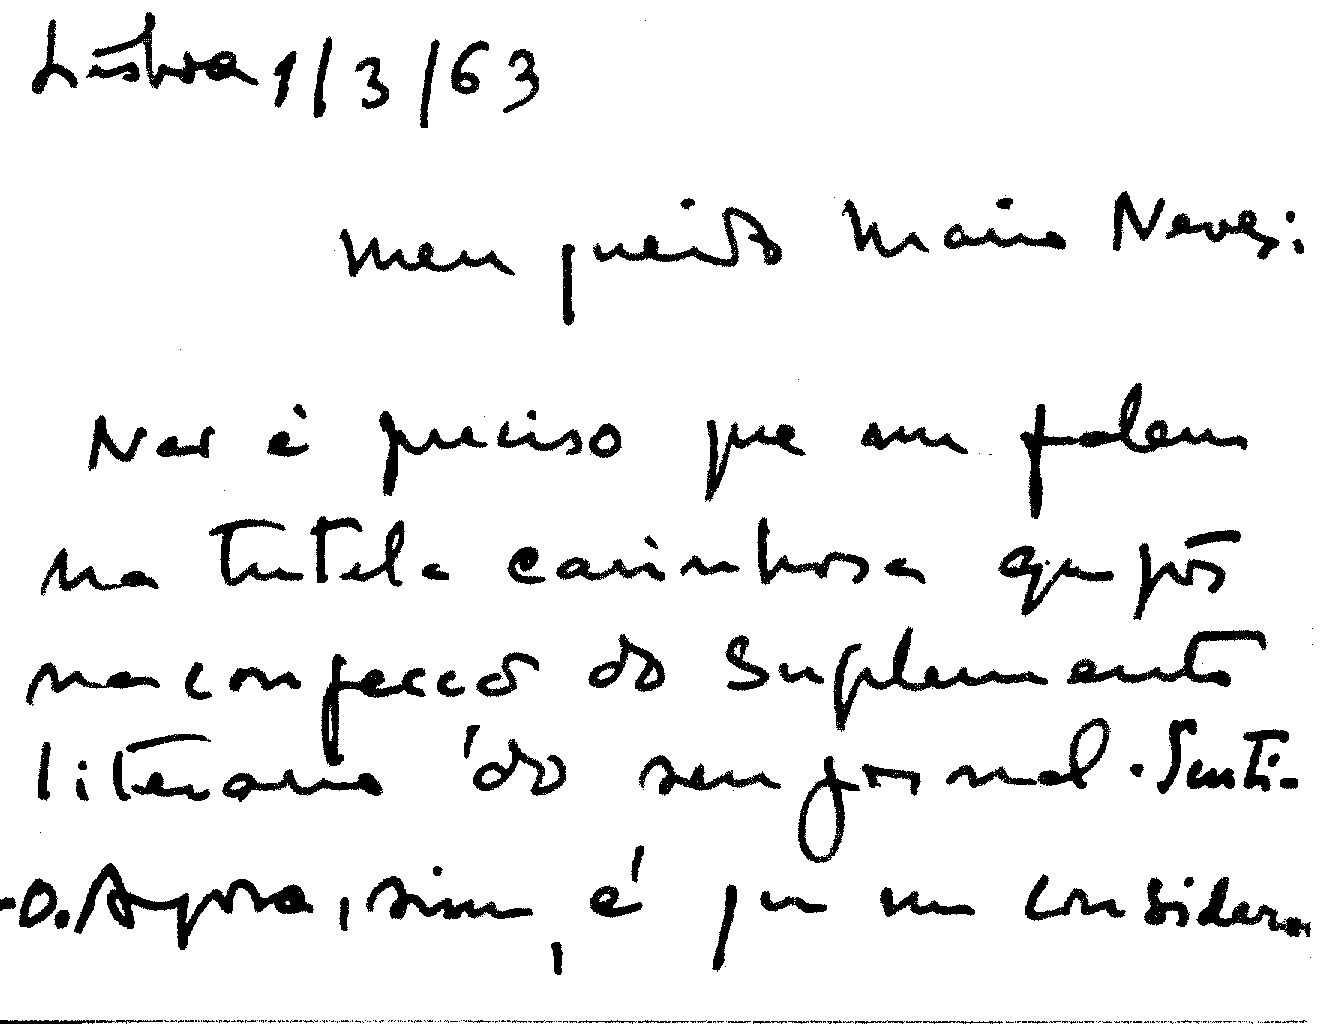 Lisboa 1/3/63
Meu querido Mário Neves:
Não é preciso que me falem
na tutela carinhosa que pôs
na confecção do Suplemento
literário do seu jornal. Senti-
-o. Agora, sim, é que me considero